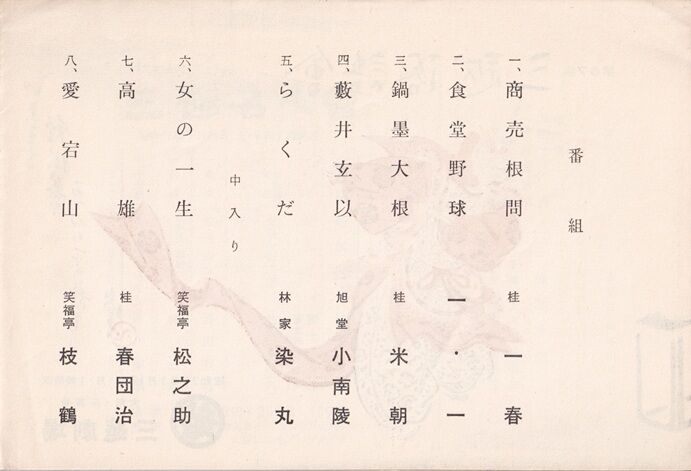 番組
一、商売根問 桂 一春
二、食堂野球 一・一
三、鍋墨大根 桂 米朝
四、藪井玄以 旭堂 小南陵
五、らくだ 林家 染丸
中入り
六、女の一生 笑福亭 松之助
七、高雄 桂 春団治
八、愛宕山 笑福亭 枝鶴